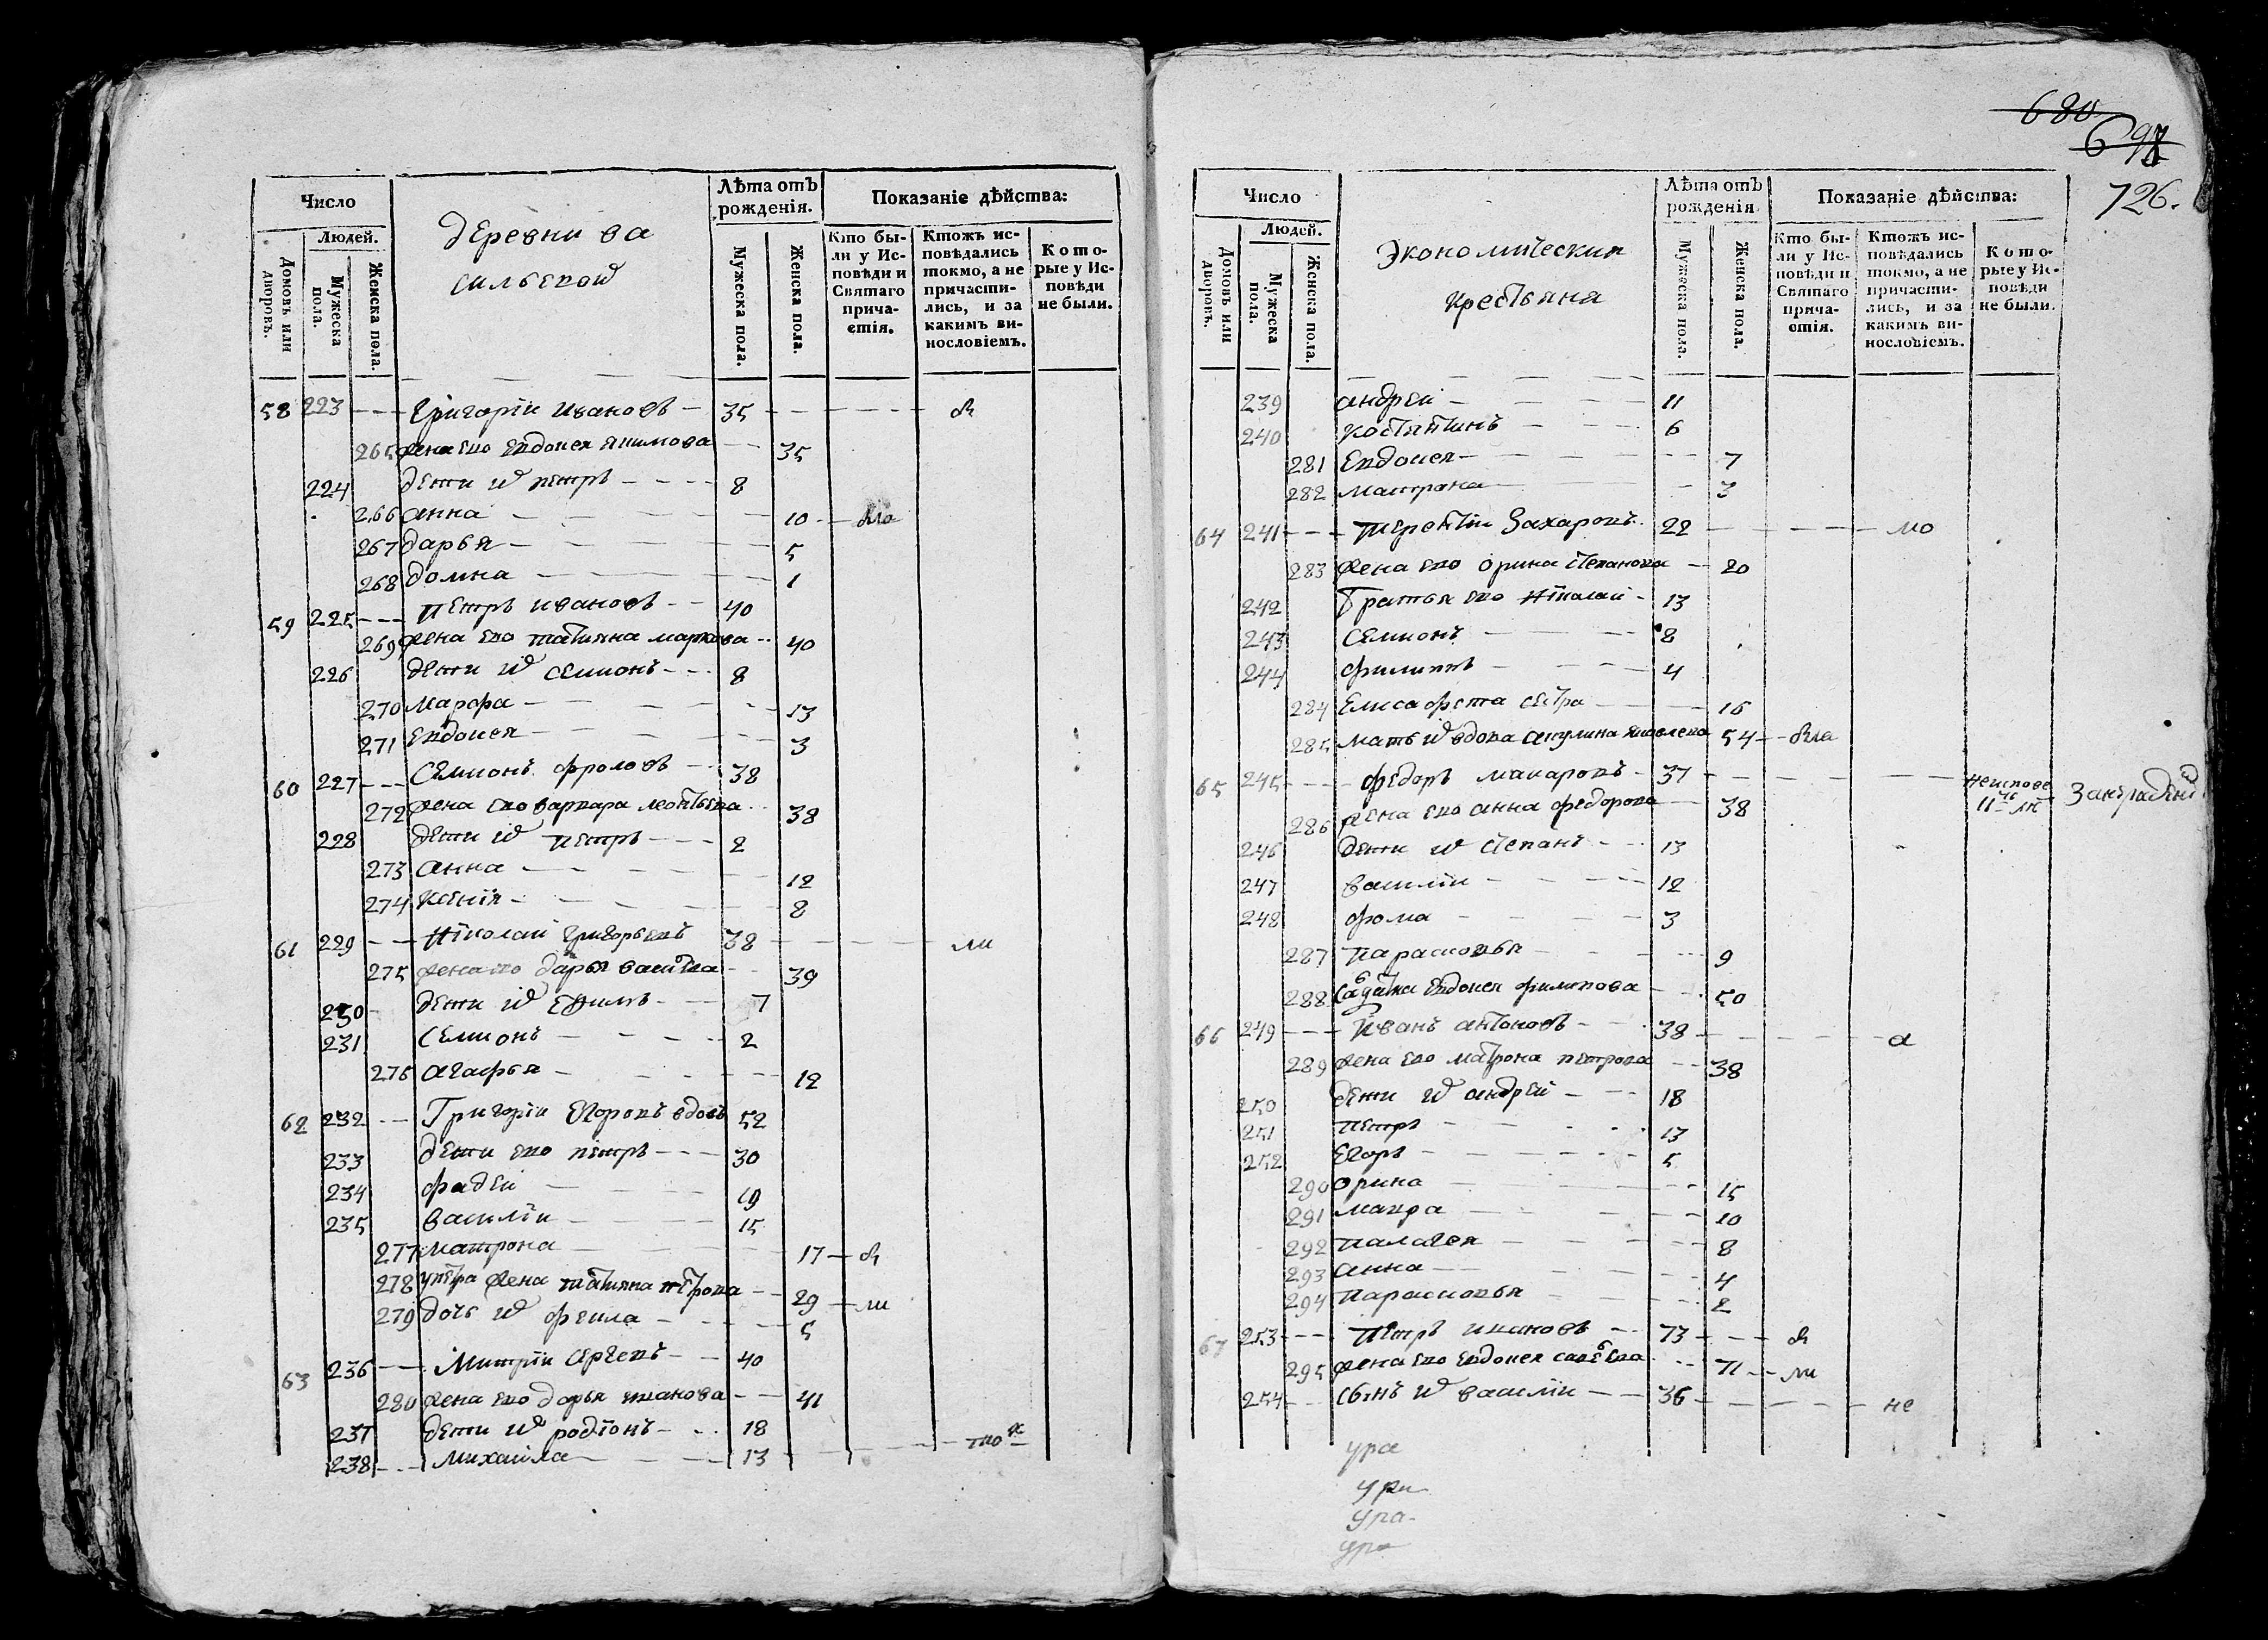 680
697
726.
Число
Людей.
Домовъ или дворовъ.
Мужеска пола.
Женска пола.
деревни ва
сильевой
Лѣта отъ рожденія.
Мужеска пола.
Женска пола.
Показаніе дѣйства:
Кто бы-
ли у Ис-
повѣди и
Святаго
прича-
стія.
Ктожъ ис-
повѣдались
токмо, а не
причасти-
лись, и за
какимъ ви-
нословіемъ.
Кото-
рые у Ис-
повѣди
не были.
58 223 григории ивановъ 35
265 жена ево евдокея якимова 35
224 дети их петръ 8
266 анна 10
267 дарья 5
268 домна 1
59 225 петръ ивановъ 40
269 жена ево татияна маркова 40
226 дети их семионъ 8
270 марфа 13
271 евдокея 3
60 227 семионъ фроловъ 38
272 жена ево варвара леонтьева 38
228 дети их петръ 2
273 анна 12
274 ксения 8
61 229 николаи григорьевъ 38
275 жена ево дарья василева 39
230 дети их ефимъ 7
231 семионъ 2
276 агафья 12
62 232 Григории егоровъ вдовъ 52
233 дети ево петръ 30
234 фадеи 19
235 василии 15
277 матрона 17
278 у петра жена татияна петрова 29
279 дочь их фекла 5
63 236 митрии сергеевъ 40
280 жена ево дарья 41
237 дети их родионъ 18
238 михаила 13
Число
Людей.
Домовъ или дворовъ.
Мужеска пола.
Женска пола.
Экономическия
крестьяна
Лѣта отъ рожденія
Мужеска пола.
Женска пола.
Показаніе дѣйства:
Кто бы-
ли у Ис-
повѣди и
Святаго
прича-
стія.
Ктожъ ис-
повѣдались
токмо, а не
причасти-
лись, и за
какимъ ви-
нословіемъ.
Кото-
рые у Ис-
повѣди
не были.
239 андреи 11
240 костянтинъ 6
281 евдокея 7
282 матрона 3
64 241 терентии Захаровъ 22 мо
283 жена ево орина степанова 20
242 братья ево николаи 13
243 семионъ 8
244 филиппъ 4
284 елисафета сестра 16
285 мать их вдова акулина яковлева 54
65 245 федоръ макаровъ 37 неиспове
286 жена ево анна федорова 38
246 дети их степанъ 13
247 василии 12
248 фома 3
287 парасковья 9
288 евдокея филипова 50
66 249 иванъ антоновъ 38 а
289 жена ево матрона петрова 38
250 дети их андреи 18
251 петръ 13
252 егоръ 5
290 орина 15
291 мавра 10
292 палагея 8
293 анна 4
294 парасковья 2
67 253 петръ ивановъ 73
295 жена ево евдокея савельева 71 ли
254 сынъ их василии 36 не
ура
ури
ура
ура